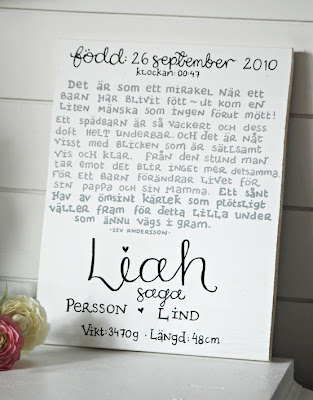 född: 26 september 2010
klockan: 00:47
Det är som ett mirakel när ett
barn har blivit fött - ut kom en
liten mänska som ingen förut mött!
Ett spädbarn är så vackert och dess
doft helt underbar. och det är nåt
visst med blicken som är sällsamt
vis och klar. Från den stund man
tar emot det blir inget mer detsamma.
För ett barn förändrar livet för
sin pappa och sin mamma. Ett sånt
hav av ömsint kärlek som plötsligt
väller fram för detta lilla under
som ännu vägs i gram.
-Siv Andersson-
Liah
saga
Persson ♥ Lind
Vikt: 3470g · Längd: 48cm